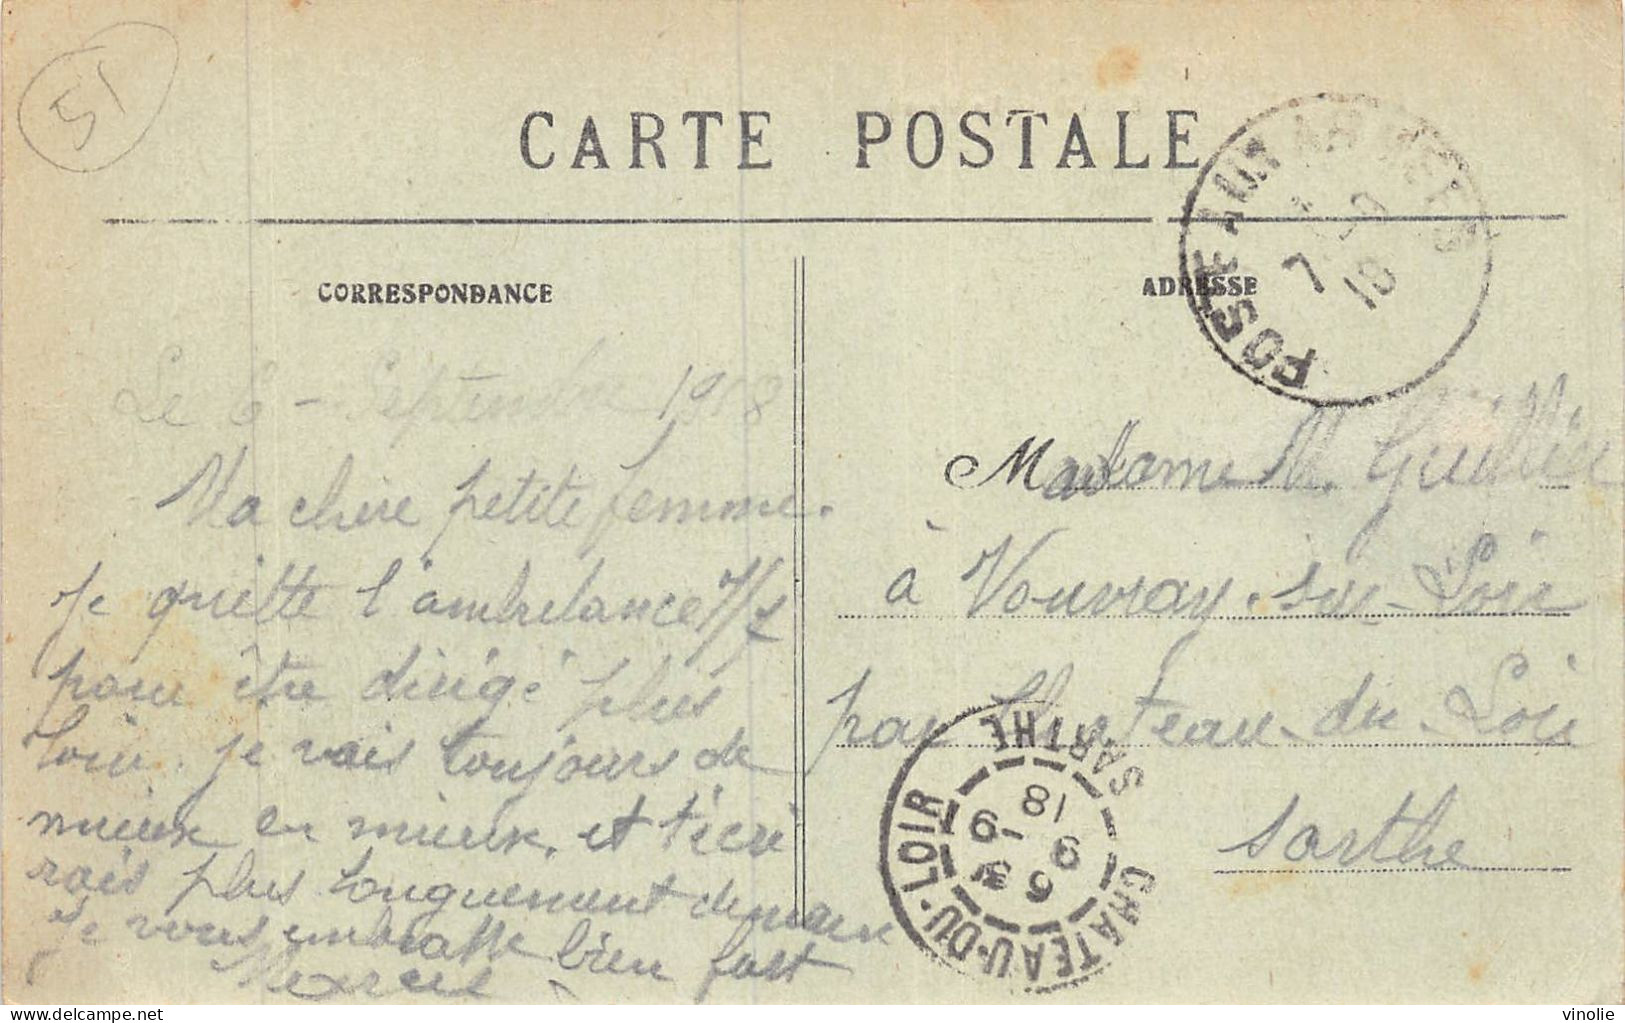 51
CARTE POSTALE
POSTE AUX ARMEES
7 9
18
CORRESPONDANCE
ADRESSE
Le 6 - Septembre 1918
Ma chère petite femme.
Je quitte l'ambulance
pour être dirigé plus
loin. je vais toujours de
mieux en mieux, et t'écri
rais plus longuement demain
Je vous embrasse bien fort
Madame M.
à Vouvray-sur-Loir
par Chateau-du-Loir
Sarthe
CHATEAU-DU-LOIR
SARTHE
9 -9
18
delcampe.net
vinolie